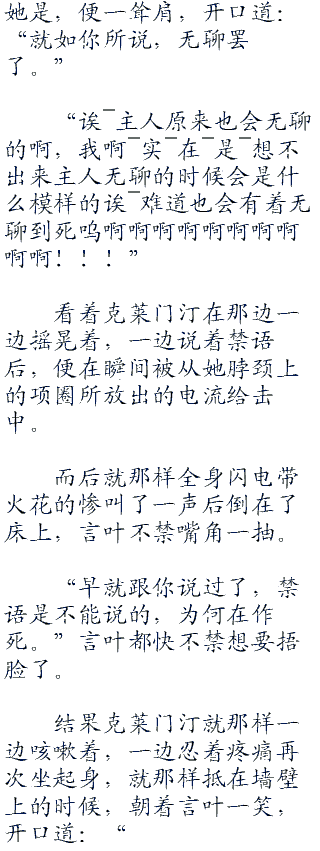 她是，便一耸肩，开口道：
“就如你所说，无聊罢
了。”
“诶¯主人原来也会无聊
的啊，我啊¯实¯在¯是¯想不
出来主人无聊的时候会是什
么模样的诶¯难道也会有着无
聊到死呜啊啊啊啊啊啊啊啊
啊啊！！！”
看着克莱门汀在那边一
边摇晃着，一边说着禁语
后，便在瞬间被从她脖颈上
的项圈所放出的电流给击
中。
而后就那样全身闪电带
火花的惨叫了一声后倒在了
床上，言叶不禁嘴角一抽。
“早就跟你说过了，禁
语是不能说的，为何在作
死。”言叶都快不禁想要捂
脸了。
结果克莱门汀就那样一
边咳嗽着，一边忍着疼痛再
次坐起身，就那样抵在墙壁
上的时候，朝着言叶一笑，
开口道：“